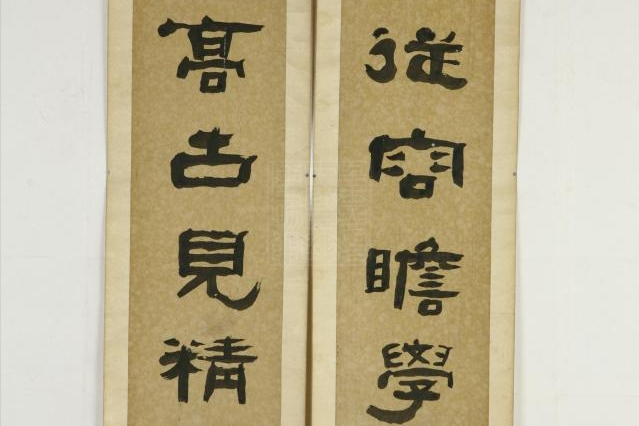 從容瞻學
髙古見精